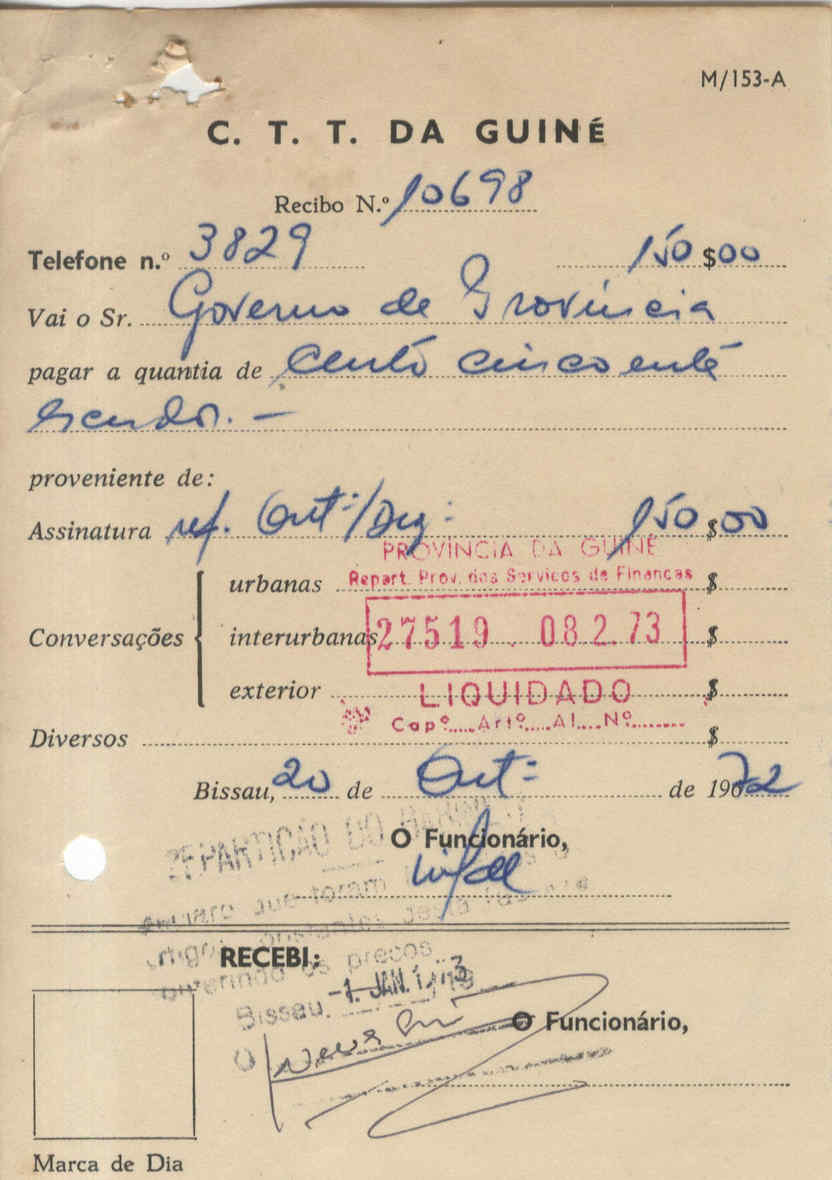 M/153-A
C. T. T. DA GUINÉ
Recibo N.º 10698
Telefone n.º 3829 150 $00
Vai o Sr. Governo da Provincia
pagar a quantia de Cento cincoenta
escudos. —
proveniente de:
Assinatura ref. Out.º/Dez.º 150 $00
PROVÍNCIA DA GUINÉ
Repart. Prov. dos Serviços de Finanças
urbanas $
Conversações interurbanas $
27519 . 08.2.73
exterior $
LIQUIDADO
Capº.....Artº....Al....Nº........
Diversos $
Bissau, 20 de Out.º de 1972
REPARTIÇÃO DO
O Funcionário,
que foram
desta
RECEBI:
os preços
Bissau, -1. JAN. 1973
O Funcionário,
O
Marca de Dia